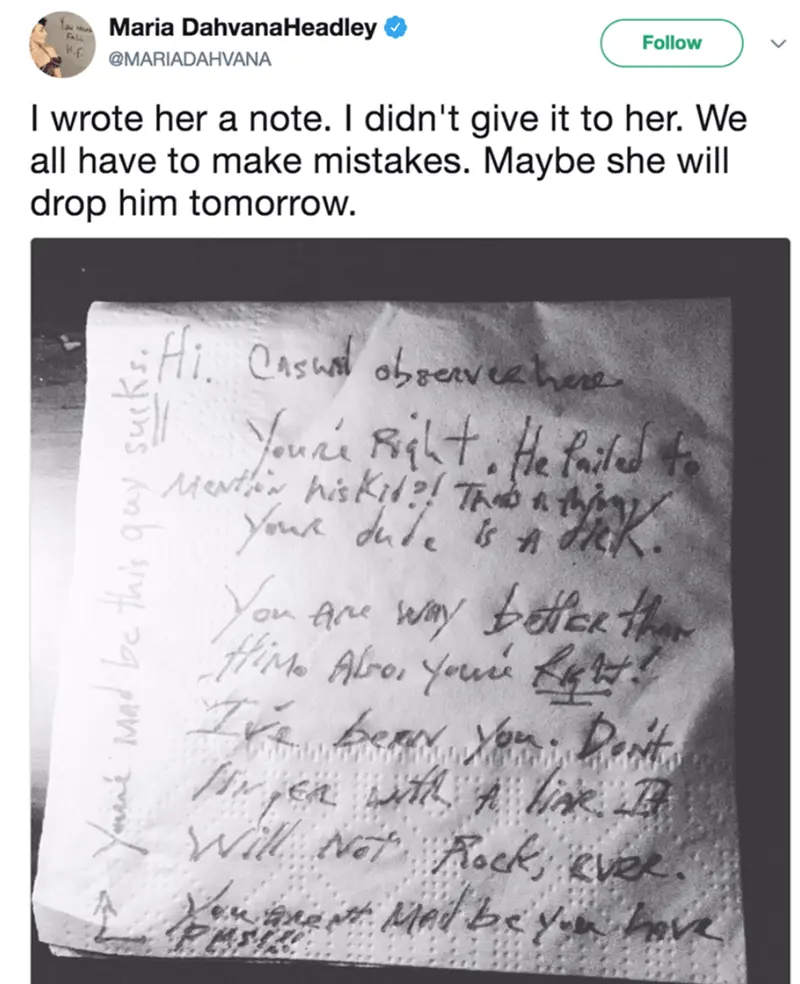 Maria DahvanaHeadley
@MARIADAHVANA
Follow
I wrote her a note. I didn't give it to her. We
all have to make mistakes. Maybe she will
drop him tomorrow.
Hi. Casual observer here
You're Right. He failed to
Mention his Kid?! That's a thing
Your dude is A dick.
You Are way better than
Him. Also, you're Right!
I've been you. Don't
linger with A liar. It
Will Not Rock, ever.
You aren't Mad be you have
PMS!!!
You're mad be this guy sucks.